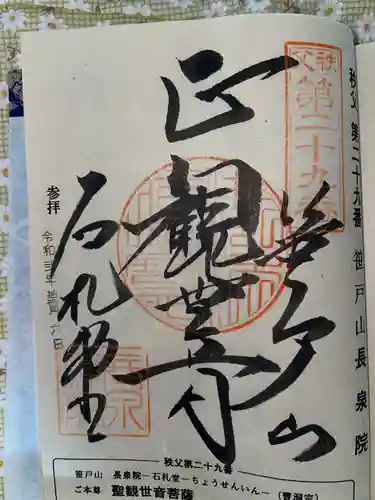 秩父 第二十九番 笹戸山長泉院
秩父
第二十九番
笹戸山
正観世音
石札堂
参拝
令和弐年
六日
秩父第二十九番
笹戸山 長泉院―石札堂―ちょうせんいん―(曹洞宗)
ご本尊 聖観世音菩薩